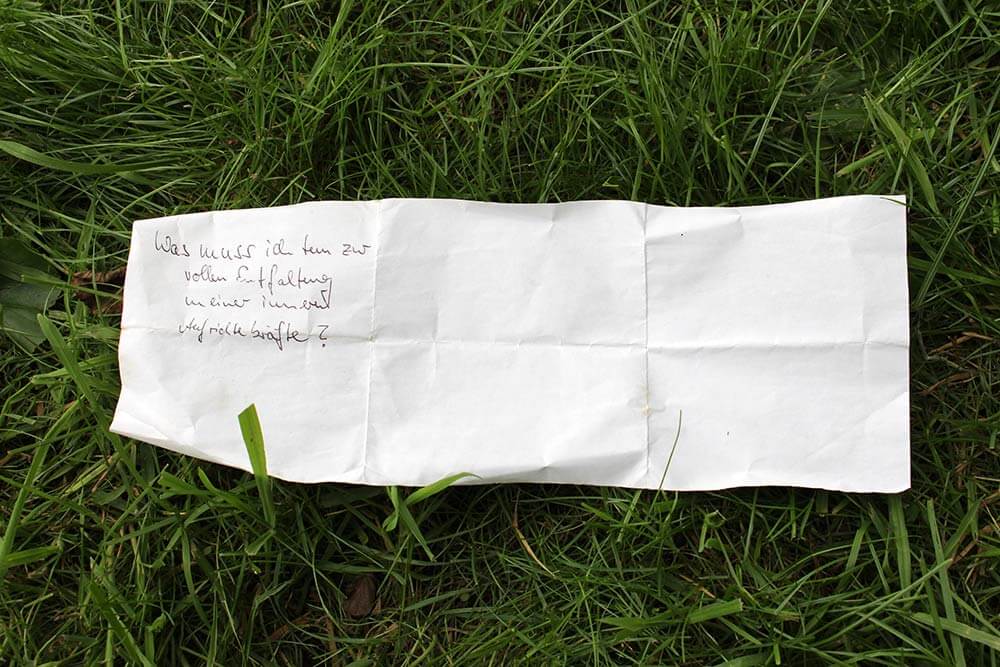 Was muss ich tun zur
vollen Entfaltung
meiner inneren
Aufrichtekräfte?